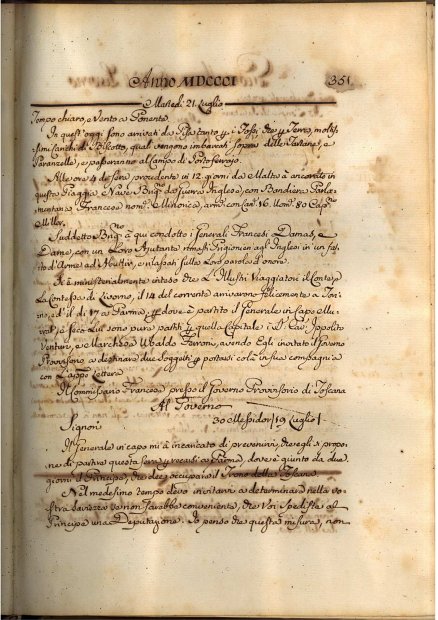 Anno MDCCCI
351.
Martedì 21. Luglio
Tempo chiaro, e Vento a Ponente.
In quest'oggi sono arrivati da Pisa tanto p. i Fossi, che p. Terra, moltis-
simi sacchi di Biscotto, quali vengono imbarcati sopra delle Tartane, e
Paranzelle, e passeranno al Campo di Portoferrajo.
Alle ore 4 di sera procedente in 12 giorni da Malta è ancorato in
questa Spiaggia Nave Brig. da Guerra Inglese, con Bandiera Parla-
mentaria Francese nom. Minorica, arm. con Can. 16. Uom. 80 Cap.
Miller.
Suddetto Brig. à qui condotto i Generali Francesi Damas, e
con un Loro Ajutante rimasti Prigionieri agl'Inglesi in un fat-
to d'Arme ad e rilasciati sulla Loro parola d'onore.
Si è ministerialmente inteso che L'Illustri Viaggiatori il Conte, e
La Contessa di Livorno, il 14 del corrente arrivarono felicemente a Tori-
no, ed il dì 17 a Parma, p. dove è partito il Generale in Capo Mu-
rat, e seco Lui sono pure partiti p. quella Capitale i SS. Cav. Ippolito
Venturi, e Marchese Ubaldo Feroni, avendo Egli invitato il Governo
Provvisorio, a destinare due Soggetti p. portarsi colà in sua compagnia
con L'appo Lettera
Il Commissario Francese presso il Governo Provvisorio di Toscana
Al Governo
30 Messidor /19 Luglio/
Signori
Il Generale in capo mi à incaricato di prevenirvi, che egli si propo-
ne di partire questa sera, p. recarsi a Parma, dove è giunto da due
giorni il Principe, che dee occupare il Trono della Toscana.
Nel medesimo tempo devo invitarvi a determinare nella vo-
stra saviezza se non sarebbe conveniente, che Voi spediste al
Principe una Deputazione. Io penso che questa misura, non